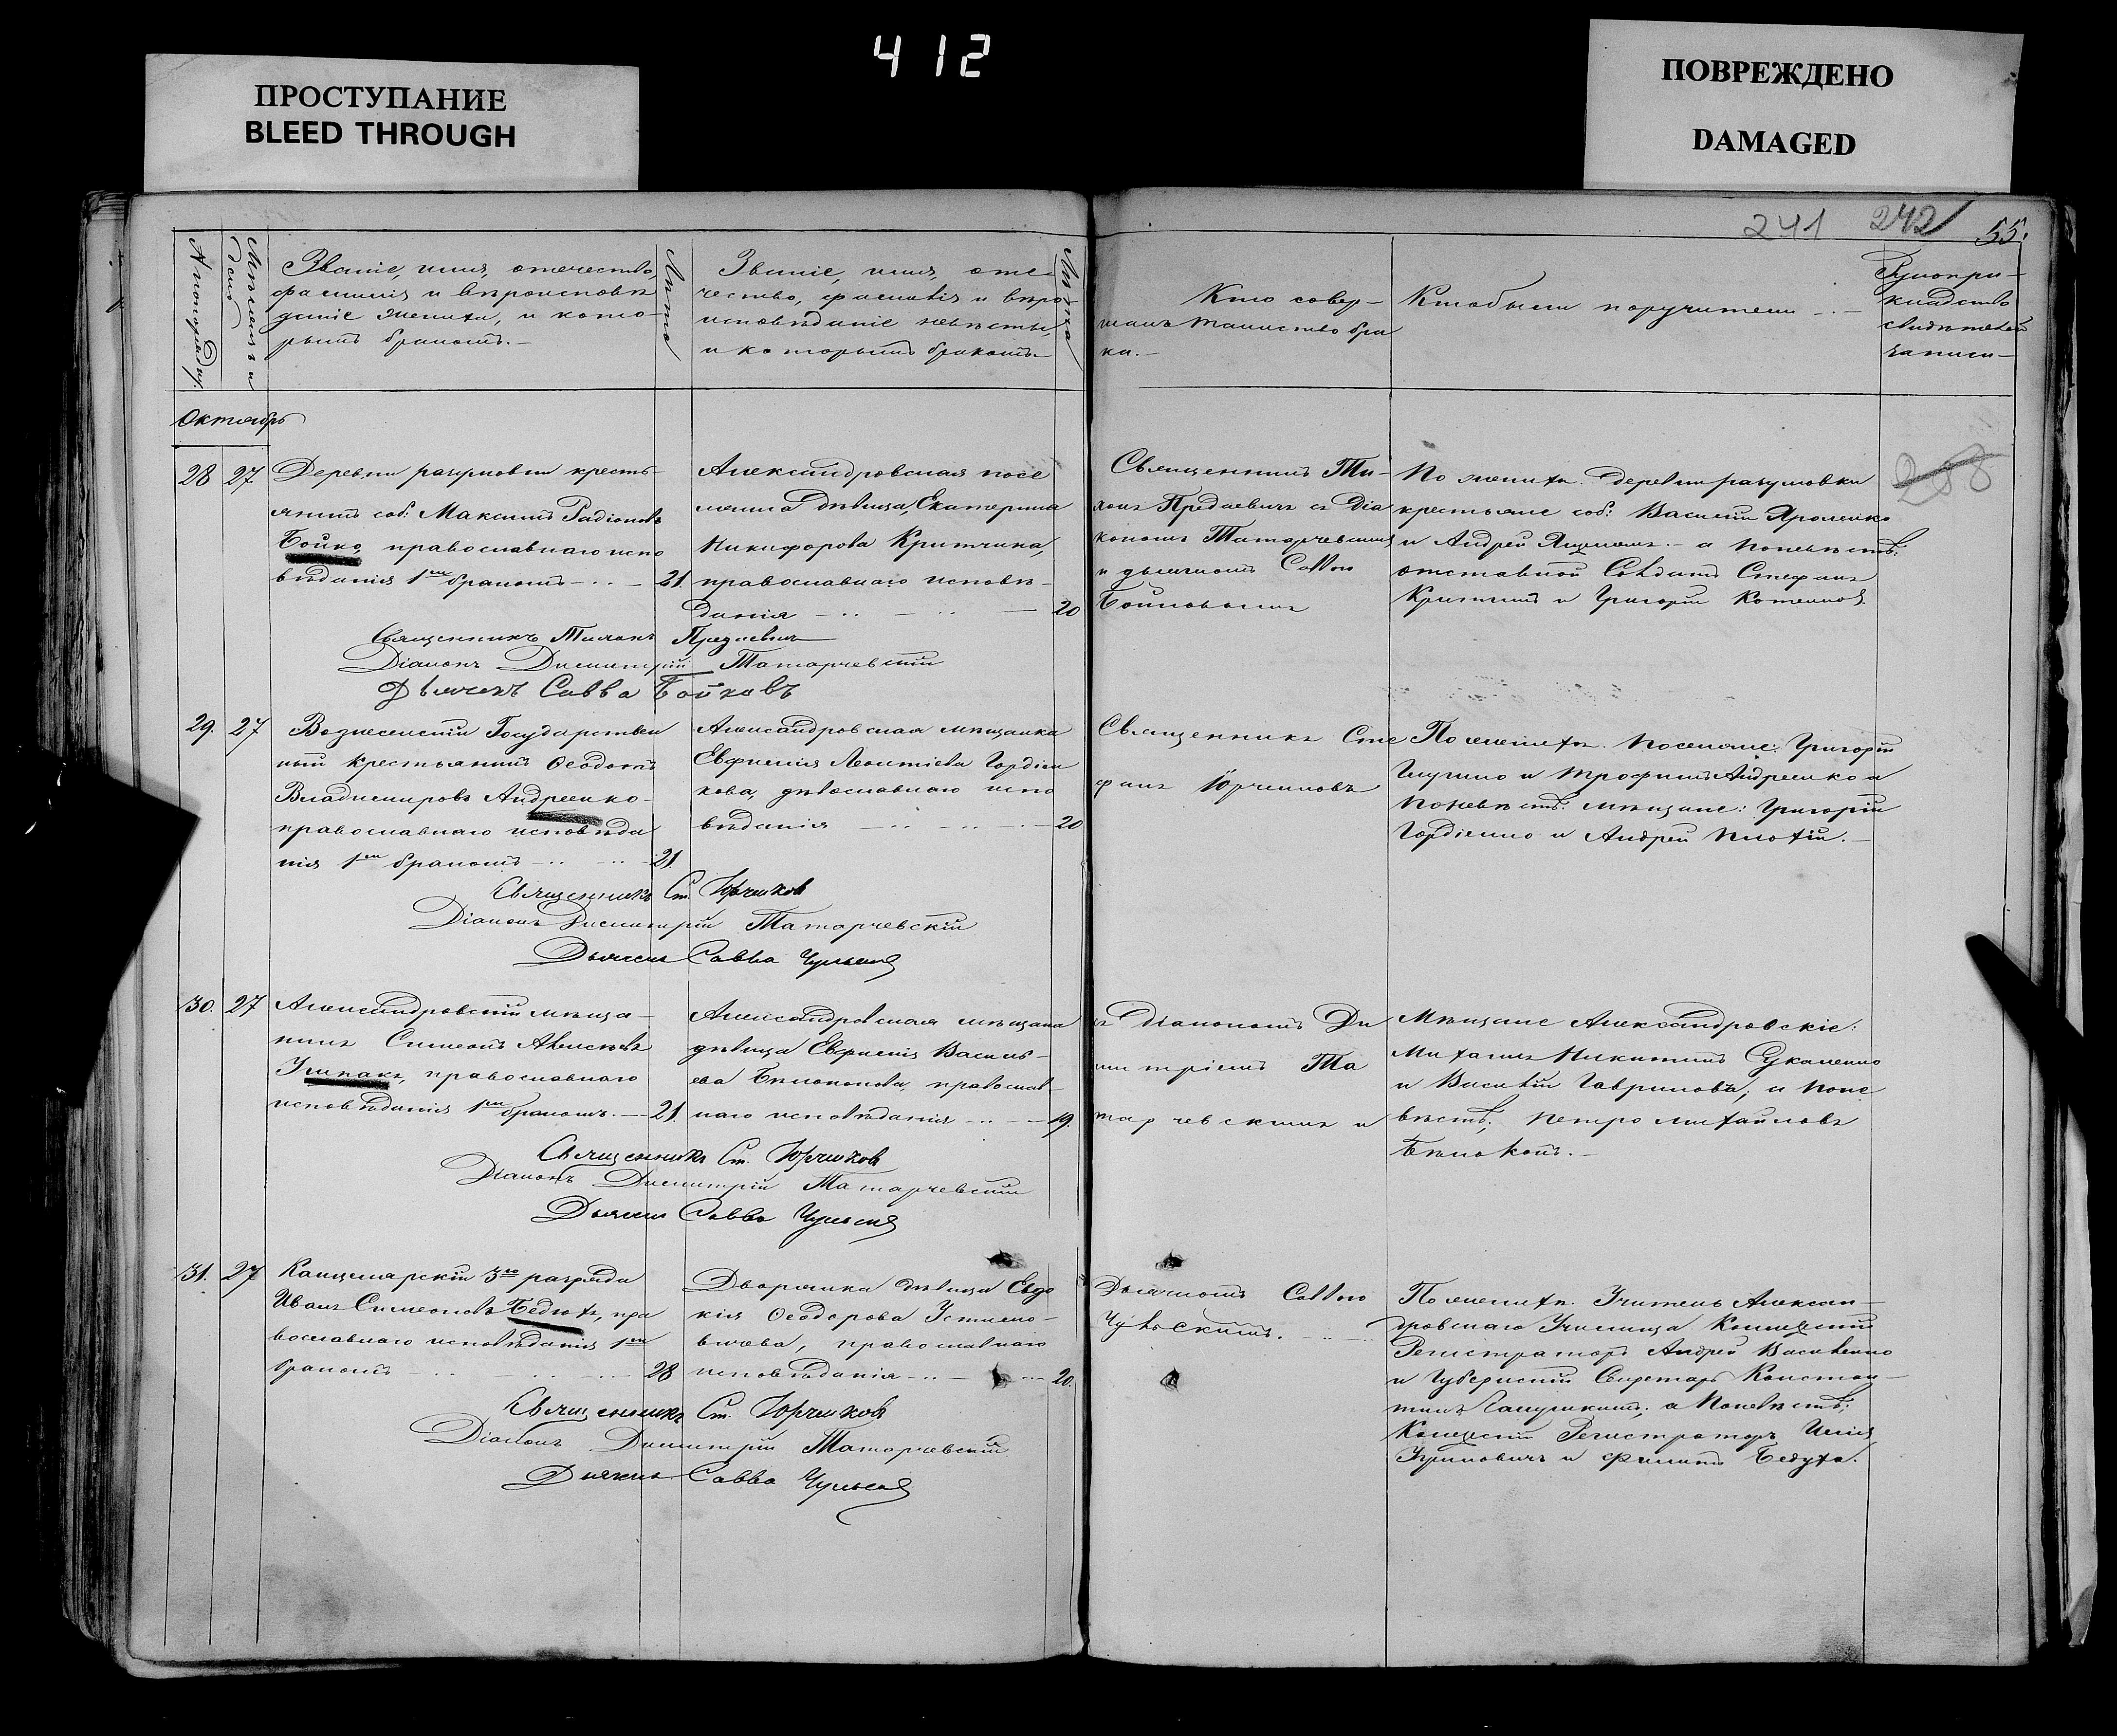 412
ПРОСТУПАНИЕ
BLEED THROUGH
ПОВРЕЖДЕНО
DAMAGED
241 242 55.
Мѣсяцъ и
день
Званіе, имя, отечество,
фамилія и вѣроисповѣ
даніе жениха, и кото-
рымъ бракомъ.-
Лѣта
Званіе, имя, оте-
чество, фамилія и вѣро-
исповѣданіе невѣсты,
и которымъ бракомъ.-
Лѣта
Кто совер-
шалъ таинство бра
ка.-
Кто были поручители
Рукопри-
кладство
свидѣтелей
записи-
Октябрь
28 27. Деревни разумовки кресть-
янинъ соб: Максимъ Радіоновъ
Бойко, православнаго испо
вѣданія 1мъ бракомъ - 21.
Александровская посе
дѣвица, Екатерина
Никифорова
православнаго исповѣ-
данія 20
Священникъ Ти-
хонъ съ Діа
кономъ Татарчевскимъ
и дьячкомъ Саввою
Бойковымъ
По женихѣ. Деревни разумовки
крестьяне соб: Василій
и Андрей - а по невѣстѣ:
отставной Солдатъ Стефанъ
и Григорій
288
Священникъ Тихонъ
Діаконъ Димитрій Татарчевскій
Дьячекъ Савва Бойковъ
29. 27 Вознесенскій Государствен
ный крестьянинъ Ѳеодотъ
Владимировъ Андреенко-
православнаго исповѣда
нія 1мъ бракомъ 21
Александровская мѣщанка
Евфимія Леонтіева Гордіен
кова, православнаго испо
вѣданія 20
Священникъ Сте
фанъ Юрченковъ
По женихѣ. Поселяне: Григорій
и Трофимъ Андреенко и
по невѣстѣ: мѣщане: Григорій
Гордіенко и Андрей
Священникъ Ст. Юрченковъ
Діаконъ Димитрій Татарчевскій
Дьячекъ Савва Чульскій
30. 27 Александровскій мѣща-
нинъ Симеонъ Алексѣевъ
православнаго
исповѣданія 1мъ бракомъ. - 21.
Александровская мѣщанка
дѣвица Евфимія Василь-
ева Бѣлоконова, православ-
наго исповѣданія 19.
съ Діакономъ Ди
митріемъ Та
тарчевскимъ и
Мѣщане Александровскіе:
Михаилъ Никитинъ
и Василій Гавриловъ, и по не
вѣстѣ; Петро Михайловъ
Бѣлоконь.-
Священникъ Ст. Юрченковъ
Діаконъ Димитрій Татарчевскій
Дьячекъ Савва Чульскій
31. 27 Канцелярскій 3го разряда
Иванъ Симеоновъ Бедюхъ, пра
вославнаго исповѣданія 1мъ
бракомъ 28
Дворянка дѣвица Евдо
кія Ѳеодорова Устимо-
вичева, православнаго
исповѣданія 20.
Дьячкомъ Саввою
Чульскимъ.
По женихѣ. Учитель Алексан-
дровскаго Училища Коллежскій
Регистраторъ Андрей Василенко
и Губернскій Секретарь Констан-
тинъ а по невѣстѣ;
Коллежскій Регистраторъ
и Филипъ Бедуха.
Священникъ Ст. Юрченковъ
Діаконъ Димитрій Татарчевскій
Дьячекъ Савва Чульскій